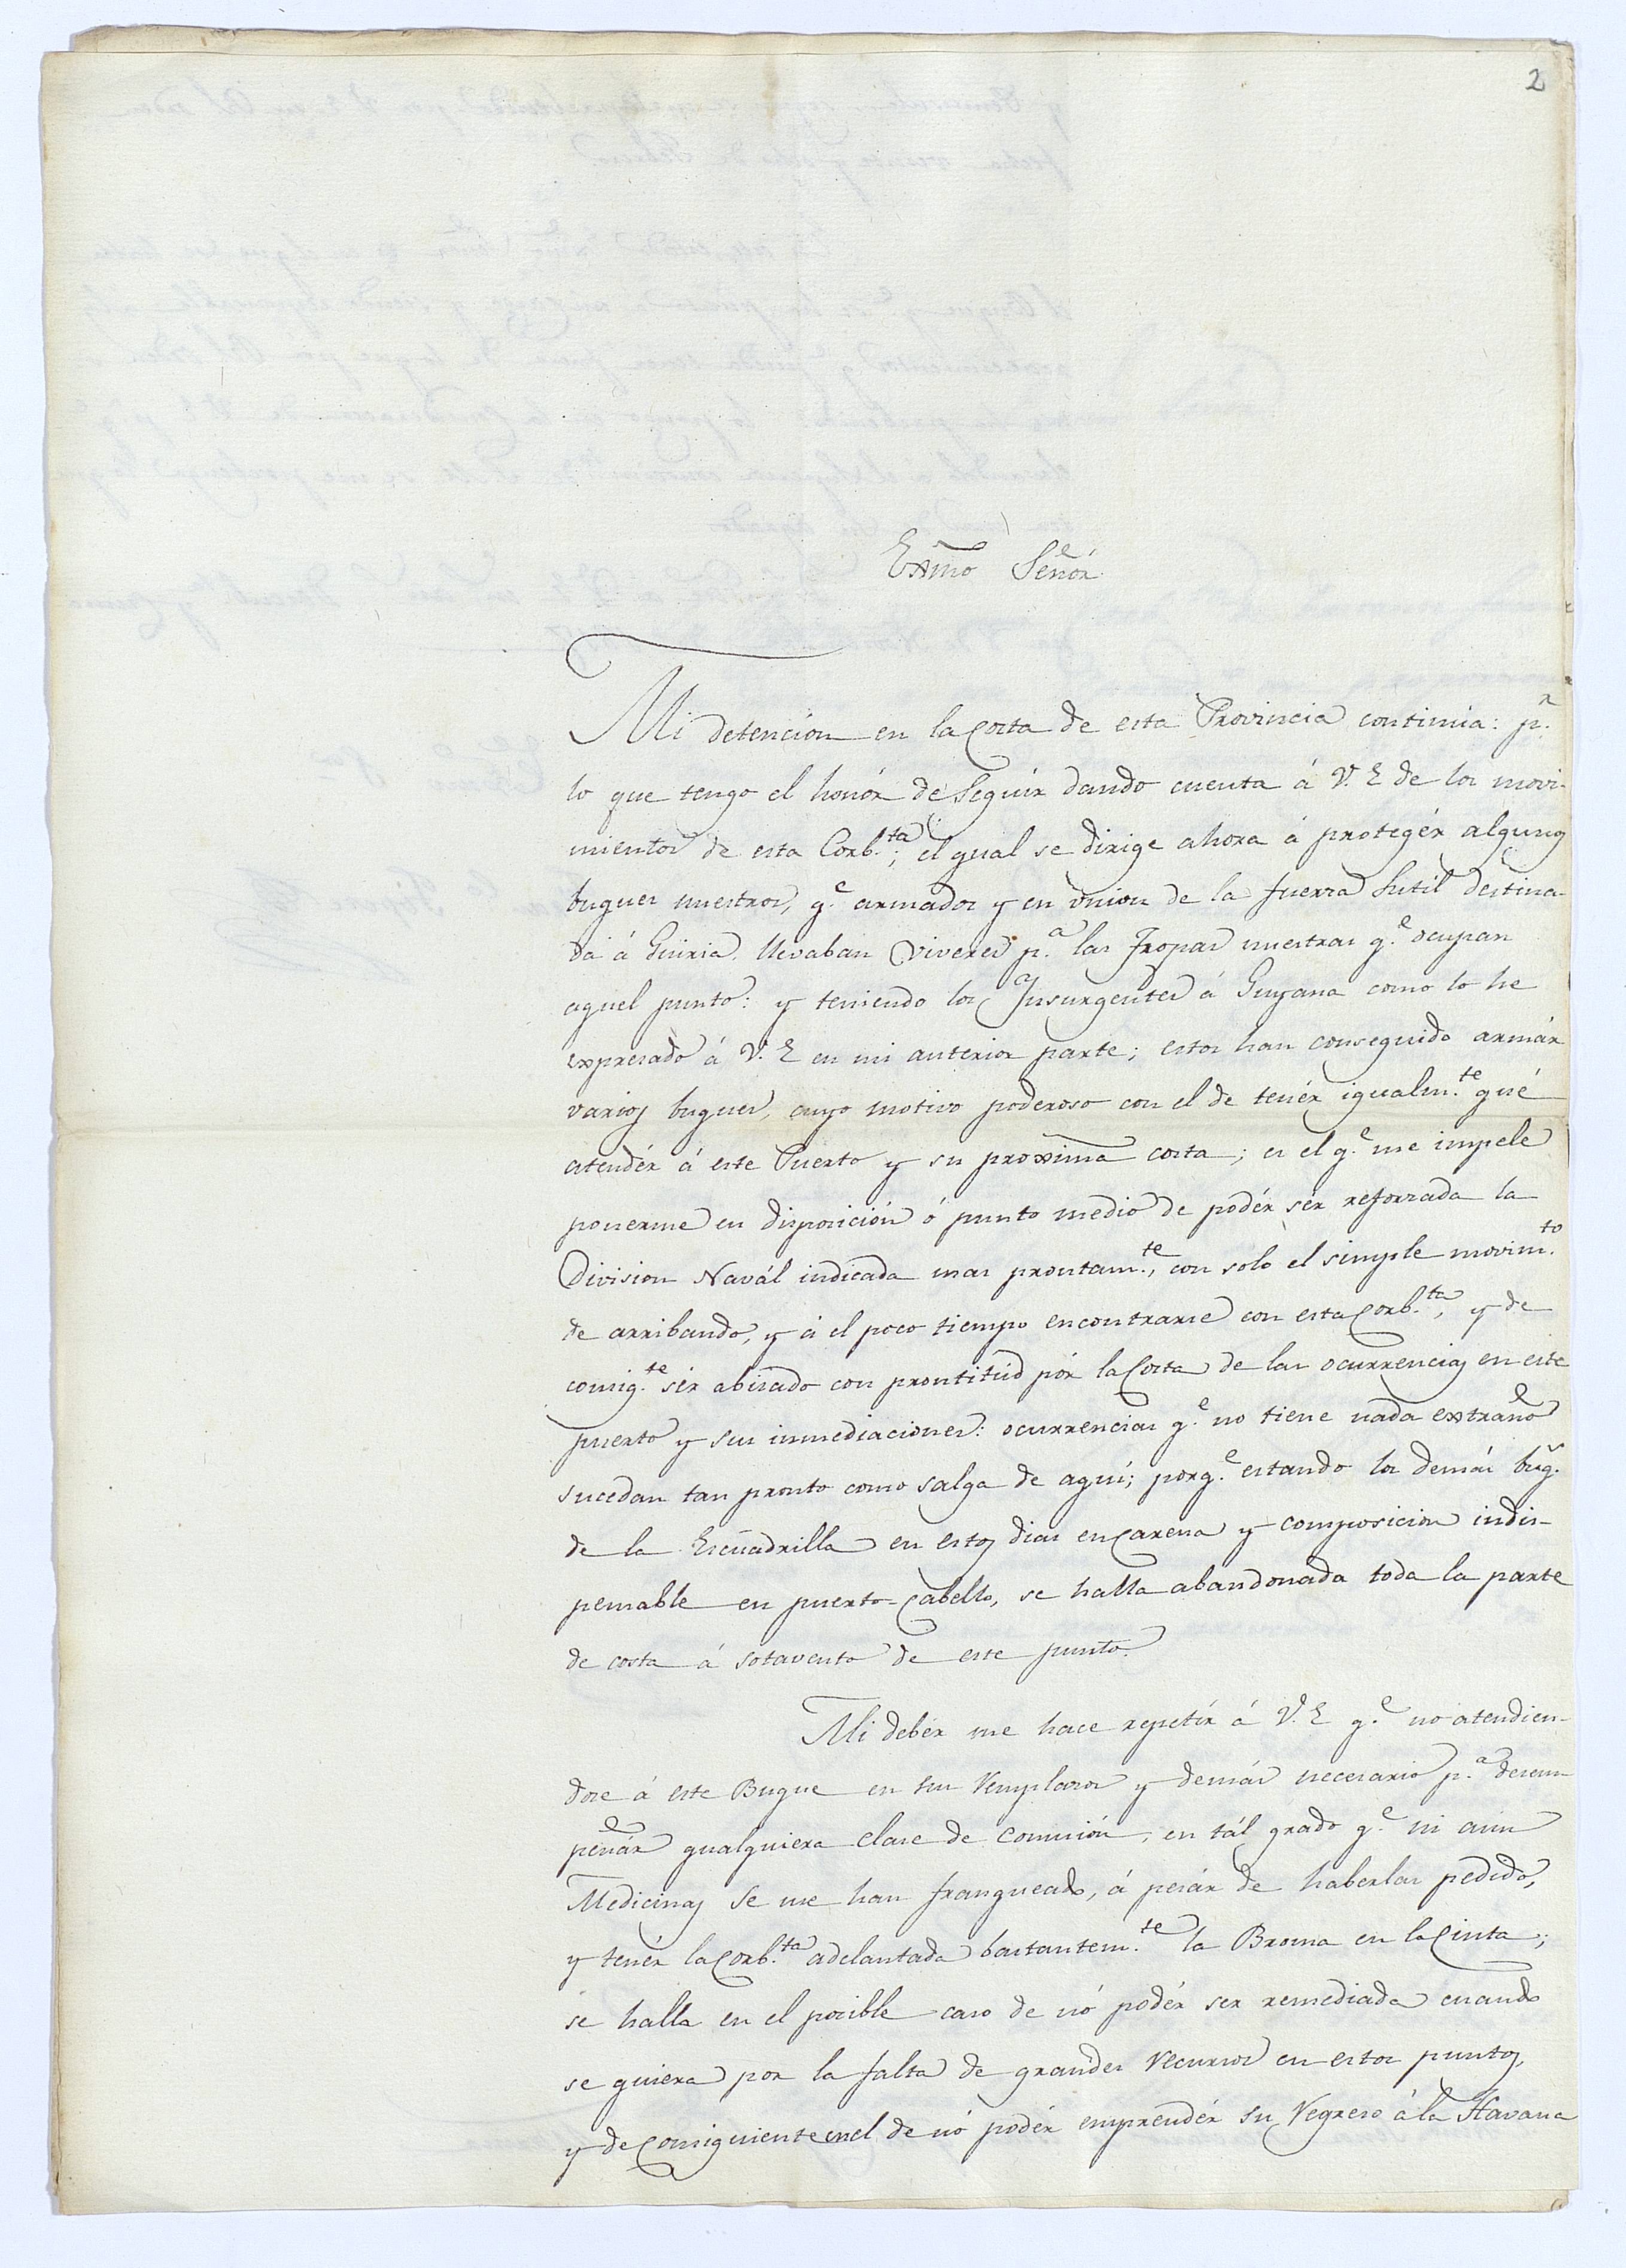 2
Exmõ Señór
Mi detención en la Costa de esta Provincia continúa: p.r
lo que tengo el honór de Seguír dando cuenta á V. E de los movi-
mientos de esta Corb.ta; el qual se dirige ahora á protegér algunos
buques nuestros, q.e armados y en vnion de la fuerza Sutíl destina-
da á Guiria. llevaban viveres p.a las Tropas nuestras q.e ocupan
aquel punto: y teniendo los Insurgentes á Guyana como lo he
expresado á V. E en mi anterior parte; estos han conseguido armár
varios buques, cuyo motivo poderoso con el de tenér igualm.te qué
atendér á este Puerto y su proxima costa; es el q.e me impele
ponerme en disposición ó punto medio de podér sér reforzada la
Division Navál indicada mas prontam.te, con solo el simple movim.to
de arribando, y á el poco tiempo encontrarse con esta Corb.ta, y de
consig.te sér abisado con prontitúd pór la Costa de las ocurrencias en este
puerto y sus inmediaciones: ocurrencias q.e no tiene nada extraño
sucedan tan pronto como salga de aquí; porq.e estando los demás buq.s
de la Escuadrilla en estos dias en Carena y composicion indis-
pensable en puerto-Cabello, se halla abandonada toda la parte
de costa á sotavento de este punto.
Mi debér me hace repetír á V. E q.e no atendien-
dose á este Buque en sus Remplasos y demás necesario p.a desem-
peñár qualquiera clase de comisión, en tál grado q.e ni aún
Medicinas Se me han franqueado, á pesár de haberlas pedido,
y tenér la Corb.ta adelantada bastantem.te la Broma en la Cinta;
se halla en el posible caso de nó podér ser remediada cuando
se quiera por la falta de grandes Recursos en estos puntos,
y de Consiguiente en el de nó podér emprendér su Regreso á la Havana